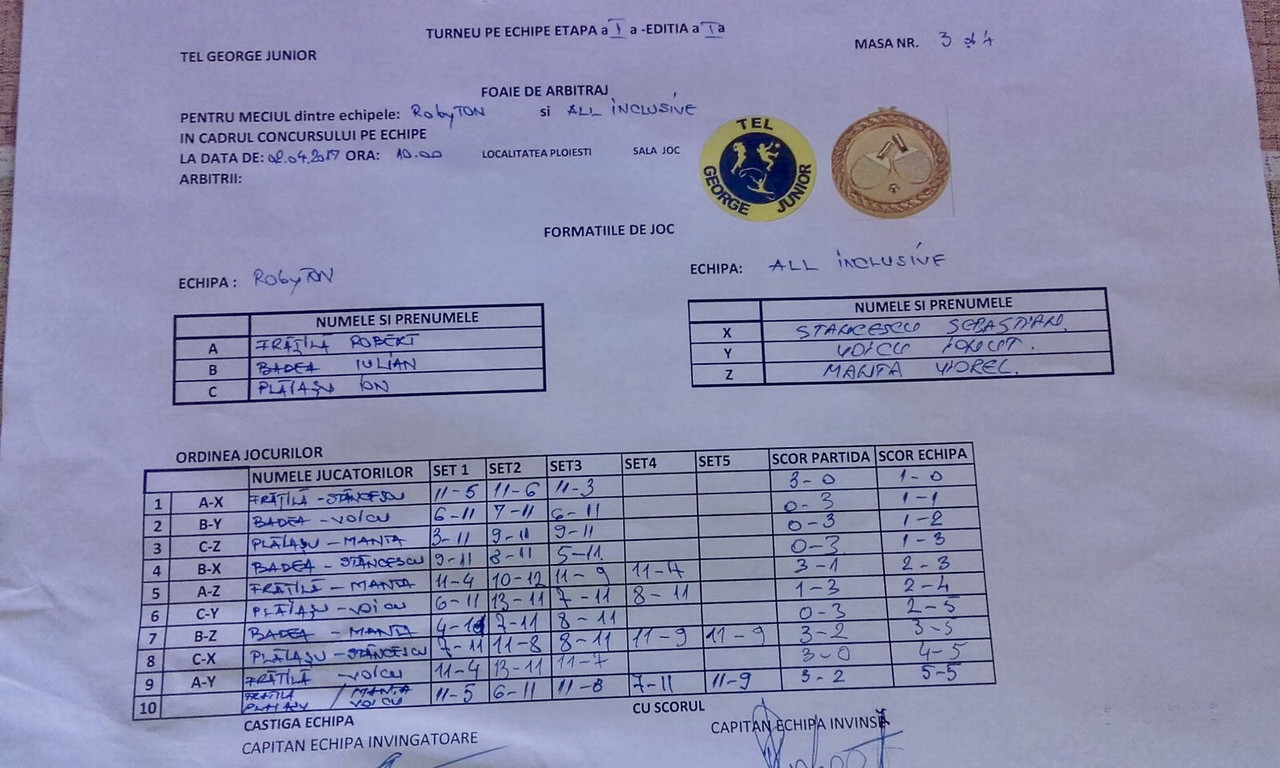 TURNEU PE ECHIPE ETAPA a I a -EDITIA a I a
TEL GEORGE JUNIOR
MASA NR. 3 și 4
FOAIE DE ARBITRAJ
PENTRU MECIUL dintre echipele: RobyTON si ALL INCLUSIVE
IN CADRUL CONCURSULUI PE ECHIPE
LA DATA DE: 02.04.2017 ORA: 10.00 LOCALITATEA PLOIESTI SALA JOC
ARBITRII:
TEL GEORGE JUNIOR
FORMATIILE DE JOC
ECHIPA : RobyTON
NUMELE SI PRENUMELE
A FRĂȚILĂ ROBERT
B BADEA IULIAN
C PLĂIAȘU ION
ECHIPA: ALL INCLUSIVE
NUMELE SI PRENUMELE
X STANCESCU SEBASTIAN.
Y VOICU IONUT.
Z MANTA VIOREL.
ORDINEA JOCURILOR
NUMELE JUCATORILOR SET 1 SET2 SET3 SET4 SET5 SCOR PARTIDA SCOR ECHIPA
1 A-X FRĂȚILĂ - STĂNCESCU 11-5 11-6 11-3 3-0 1-0
2 B-Y BADEA - VOICU 6-11 7-11 6-11 0-3 1-1
3 C-Z PLĂIAȘU - MANTA 3-11 9-11 9-11 0-3 1-2
4 B-X BADEA - STĂNCESCU 9-11 8-11 5-11 0-3 1-3
5 A-Z FRĂȚILĂ - MANTA 11-4 10-12 11-9 11-4 3-1 2-3
6 C-Y PLĂIAȘU - VOICU 6-11 13-11 7-11 8-11 1-3 2-4
7 B-Z BADEA - MANTA 4-11 7-11 8-11 0-3 2-5
8 C-X PLĂIAȘU - STĂNCESCU 7-11 11-8 8-11 11-9 11-9 3-2 3-5
9 A-Y FRĂȚILĂ - VOICU 11-4 13-11 11-7 3-0 4-5
10 FRĂȚILĂ PLĂIAȘU / MANTA VOICU 11-5 6-11 11-8 7-11 11-9 3-2 5-5
CASTIGA ECHIPA CU SCORUL
CAPITAN ECHIPA INVINGATOARE CAPITAN ECHIPA INVINSĂ